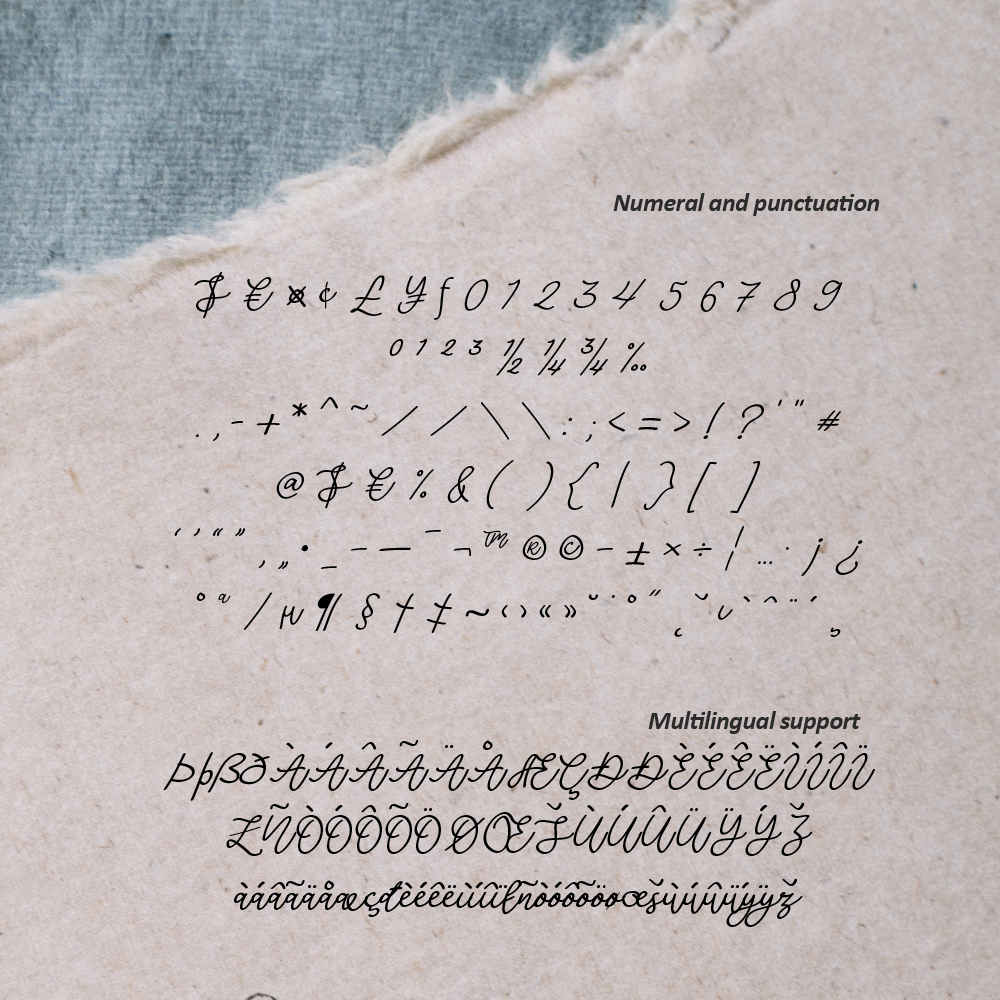 Numeral and punctuation
$ € ¤ ¢ £ ¥ ƒ 0 1 2 3 4 5 6 7 8 9
⁰ ¹ ² ³ ½ ¼ ¾ ‰
. , - + * ^ ~ / ⁄ \ \ : ; < = > ! ? ' " #
@ $ € % & ( ) { | } [ ]
‘ ’ “ ” ‚ „ • _ – — ¯ ¬ ™ ® © - ± × ÷ ¦ … · ¡ ¿
° ª / µ ¶ § † ‡ ~ ‹ › « » ˘ ˙ ˚ ˝ ˛ ˇ ˘ ` ^ ¨ ´ ¸
Multilingual support
ÞþßðÀÁÂÃÄÅÆÇÐĐÈÉÊËÌÍÎÏ
ŁÑÒÓÔÕÖØŒŠÙÚÛÜŸÝŽ
àáâãäåæçđèéêëìíîïłñòóôõöøœšùúûüýÿž